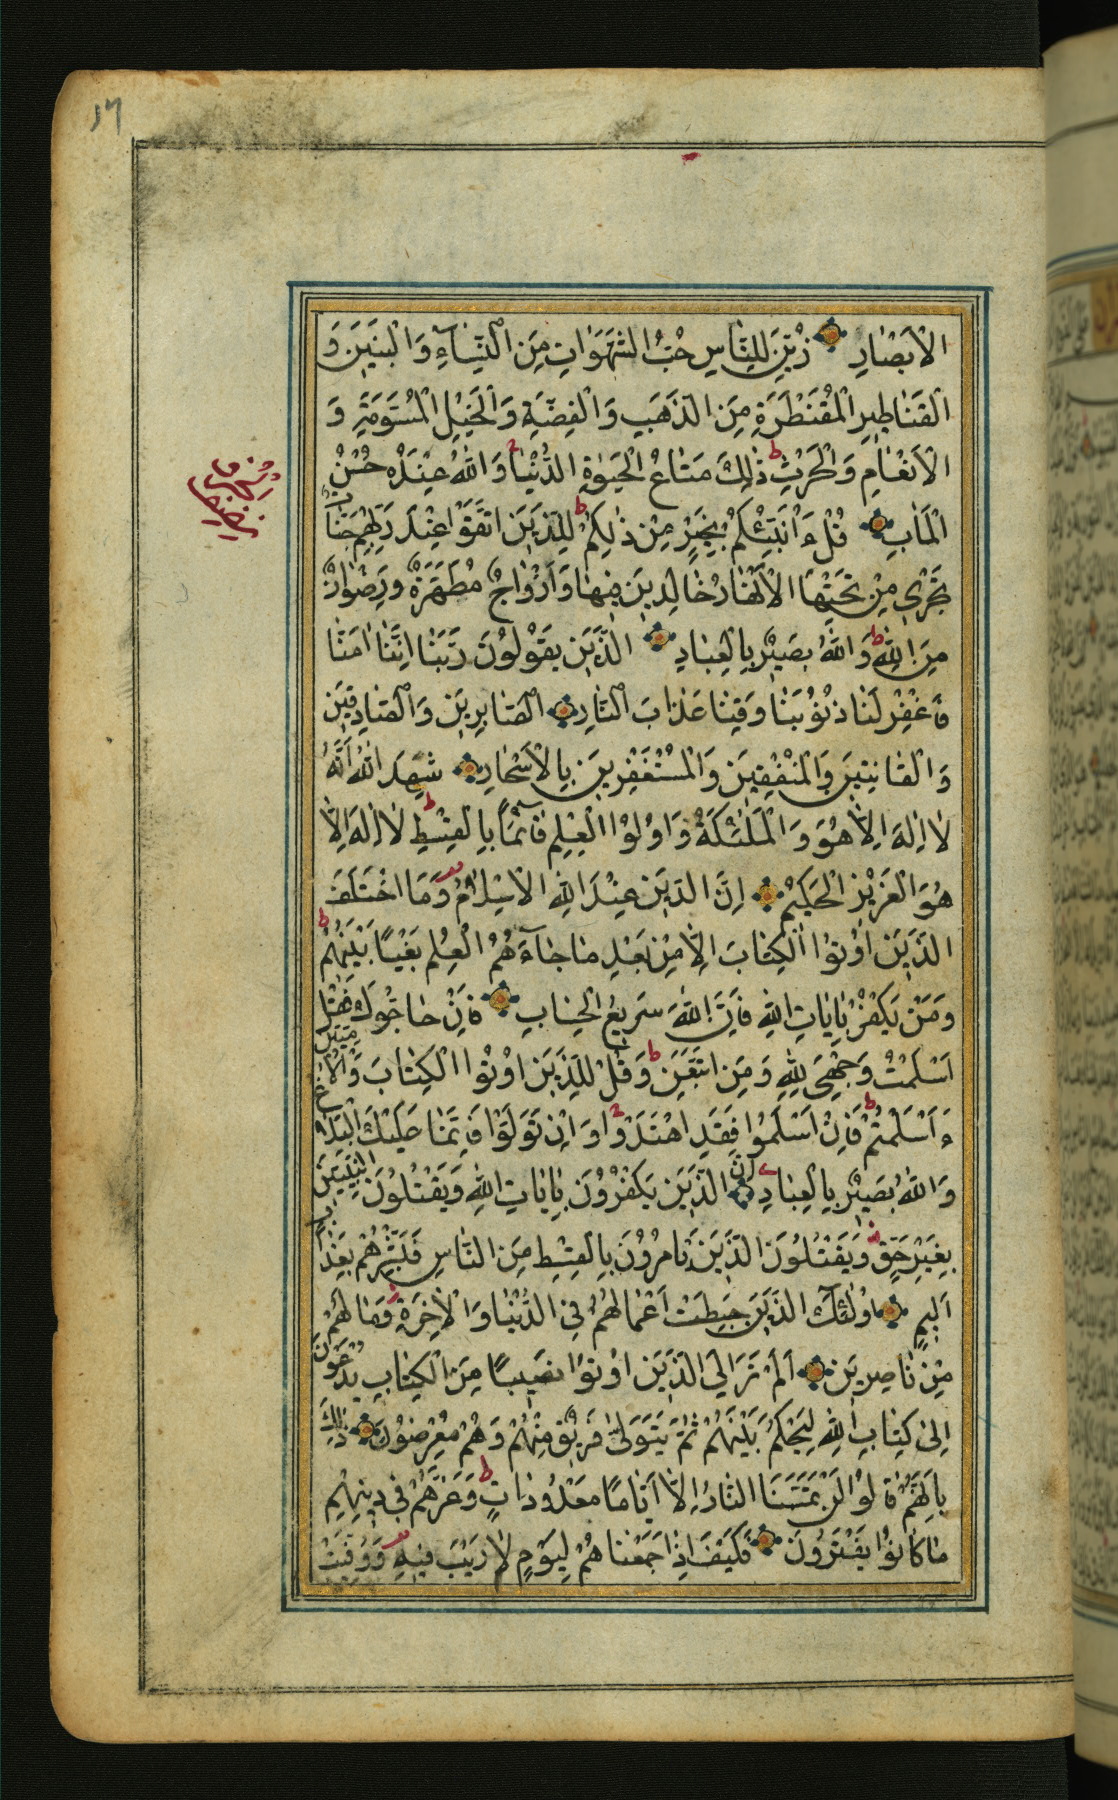 الْاَبْصٰارِ زُيِّنَ لِلنّٰاسِ حُبُّ الشَّهَوٰاتِ مِنَ النِّسٰآءِ وَالْبَنٖينَ وَ
الْقَنٰاطٖيرِ الْمُقَنْطَرَةِ مِنَ الذَّهَبِ وَالْفِضَّةِ وَالْخَيْلِ الْمُسَوَّمَةِ وَ
الْاَنْعٰامِ وَالْحَرْثِ ط ذٰلِكَ مَتٰاعُ الْحَيٰوةِ الدُّنْيٰا وَاللّٰهُ عِنْدَهُ حُسْنُ
الْمَاٰبِ قُلْ ءَاُنَبِّئُكُمْ بِخَيْرٍ مِنْ ذٰلِكُمْ ط لِلَّذٖينَ اتَّقَوْا عِنْدَ رَبِّهِمْ جَنّٰاتٌ
تَجْرٖي مِنْ تَحْتِهَا الْاَنْهٰارُ خٰالِدٖينَ فٖيهٰا وَاَزْوٰاجٌ مُطَهَّرَةٌ وَرِضْوٰانٌ
مِنَ اللّٰهِ ط وَاللّٰهُ بَصٖيرٌ بِالْعِبٰادِ الَّذٖينَ يَقُولُونَ رَبَّنٰا اِنَّنٰا اٰمَنّٰا
فَاغْفِرْ لَنٰا ذُنُوبَنٰا وَقِنٰا عَذٰابَ النّٰارِ الصّٰابِرٖينَ وَالصّٰادِقٖينَ
وَالْقٰانِتٖينَ وَالْمُنْفِقٖينَ وَالْمُسْتَغْفِرٖينَ بِالْاَسْحٰارِ شَهِدَ اللّٰهُ اَنَّهُ
لٰا اِلٰهَ اِلّٰا هُوَ وَالْمَلٰئِكَةُ وَاُولُوا الْعِلْمِ قٰآئِمًا بِالْقِسْطِ ط لٰا اِلٰهَ اِلّٰا
هُوَ الْعَزٖيزُ الْحَكٖيمُ اِنَّ الدّٖينَ عِنْدَ اللّٰهِ الْاِسْلٰامُ وَمَا اخْتَلَفَ
الَّذٖينَ اُوتُوا الْكِتٰابَ اِلّٰا مِنْ بَعْدِ مٰا جٰآءَهُمُ الْعِلْمُ بَغْيًا بَيْنَهُمْ ط
وَمَنْ يَكْفُرْ بِاٰيٰاتِ اللّٰهِ فَاِنَّ اللّٰهَ سَرٖيعُ الْحِسٰابِ فَاِنْ حٰاجُّوكَ فَقُلْ
اَسْلَمْتُ وَجْهِيَ لِلّٰهِ وَمَنِ اتَّبَعَنِ ط وَقُلْ لِلَّذٖينَ اُوتُوا الْكِتٰابَ وَالْاُمِّيّٖينَ
ءَاَسْلَمْتُمْ ط فَاِنْ اَسْلَمُوا فَقَدِ اهْتَدَوْا وَاِنْ تَوَلَّوْا فَاِنَّمٰا عَلَيْكَ الْبَلٰاغُ
وَاللّٰهُ بَصٖيرٌ بِالْعِبٰادِ اِنَّ الَّذٖينَ يَكْفُرُونَ بِاٰيٰاتِ اللّٰهِ وَيَقْتُلُونَ النَّبِيّٖينَ
بِغَيْرِ حَقٍّ وَيَقْتُلُونَ الَّذٖينَ يَاْمُرُونَ بِالْقِسْطِ مِنَ النّٰاسِ فَبَشِّرْهُمْ بِعَذٰابٍ
اَلٖيمٍ اُولٰئِكَ الَّذٖينَ حَبِطَتْ اَعْمٰالُهُمْ فِي الدُّنْيٰا وَالْاٰخِرَةِ وَمٰا لَهُمْ
مِنْ نٰاصِرٖينَ اَلَمْ تَرَ اِلَى الَّذٖينَ اُوتُوا نَصٖيبًا مِنَ الْكِتٰابِ يُدْعَوْنَ
اِلٰى كِتٰابِ اللّٰهِ لِيَحْكُمَ بَيْنَهُمْ ثُمَّ يَتَوَلّٰى فَرٖيقٌ مِنْهُمْ وَهُمْ مُعْرِضُونَ ذٰلِكَ
بِاَنَّهُمْ قٰالُوا لَنْ تَمَسَّنَا النّٰارُ اِلّٰا اَيّٰامًا مَعْدُودٰاتٍ ط وَغَرَّهُمْ فٖي دٖينِهِمْ
مٰا كٰانُوا يَفْتَرُونَ فَكَيْفَ اِذٰا جَمَعْنٰاهُمْ لِيَوْمٍ لٰا رَيْبَ فٖيهِ وَوُفِّيَتْ